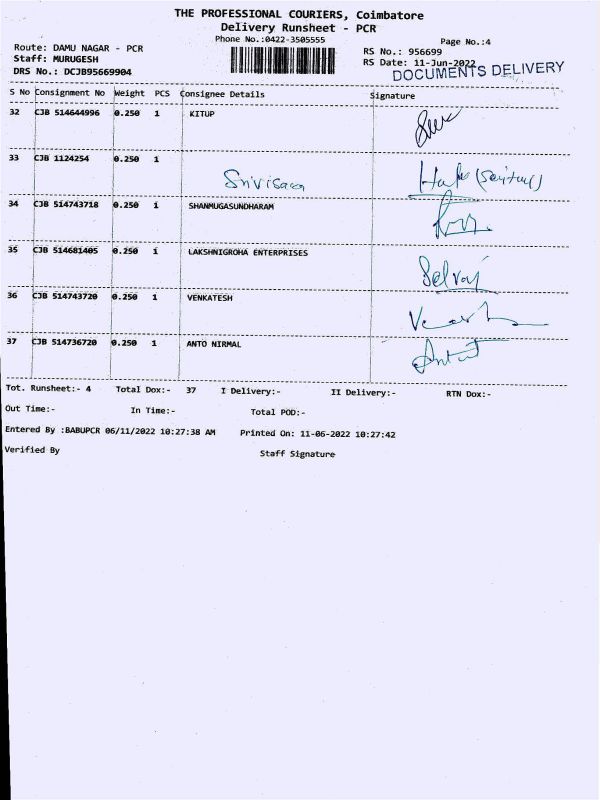 THE PROFESSIONAL COURIERS, Coimbatore
Delivery Runsheet - PCR
Phone No.:0422-3505555
Page No.:4
Route: DAMU NAGAR - PCR
RS No.: 956699
Staff: MURUGESH
RS Date: 11-Jun-2022
DRS No.: DCJB95669904
DOCUMENTS DELIVERY
S No Consignment No Weight PCS Consignee Details Signature
32 CJB 514644996 0.250 1 KITUP
33 CJB 1124254 0.250 1
34 CJB 514743718 0.250 1 SHANMUGASUNDHARAM
35 CJB 514681405 0.250 1 LAKSHNIGROHA ENTERPRISES
Selvaj
36 CJB 514743720 0.250 1 VENKATESH
37 CJB 514736720 0.250 1 ANTO NIRMAL
Tot. Runsheet:- 4 Total Dox:- 37 I Delivery:- II Delivery:- RTN Dox:-
Out Time:- In Time:- Total POD:-
Entered By :BABUPCR 06/11/2022 10:27:38 AM Printed On: 11-06-2022 10:27:42
Verified By Staff Signature